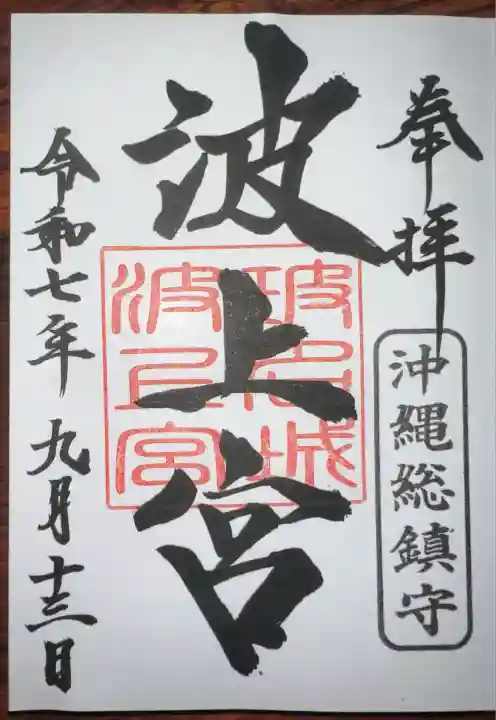 奉拝
沖縄総鎮守
波上宮
波上宮
令和七年 九月十三日